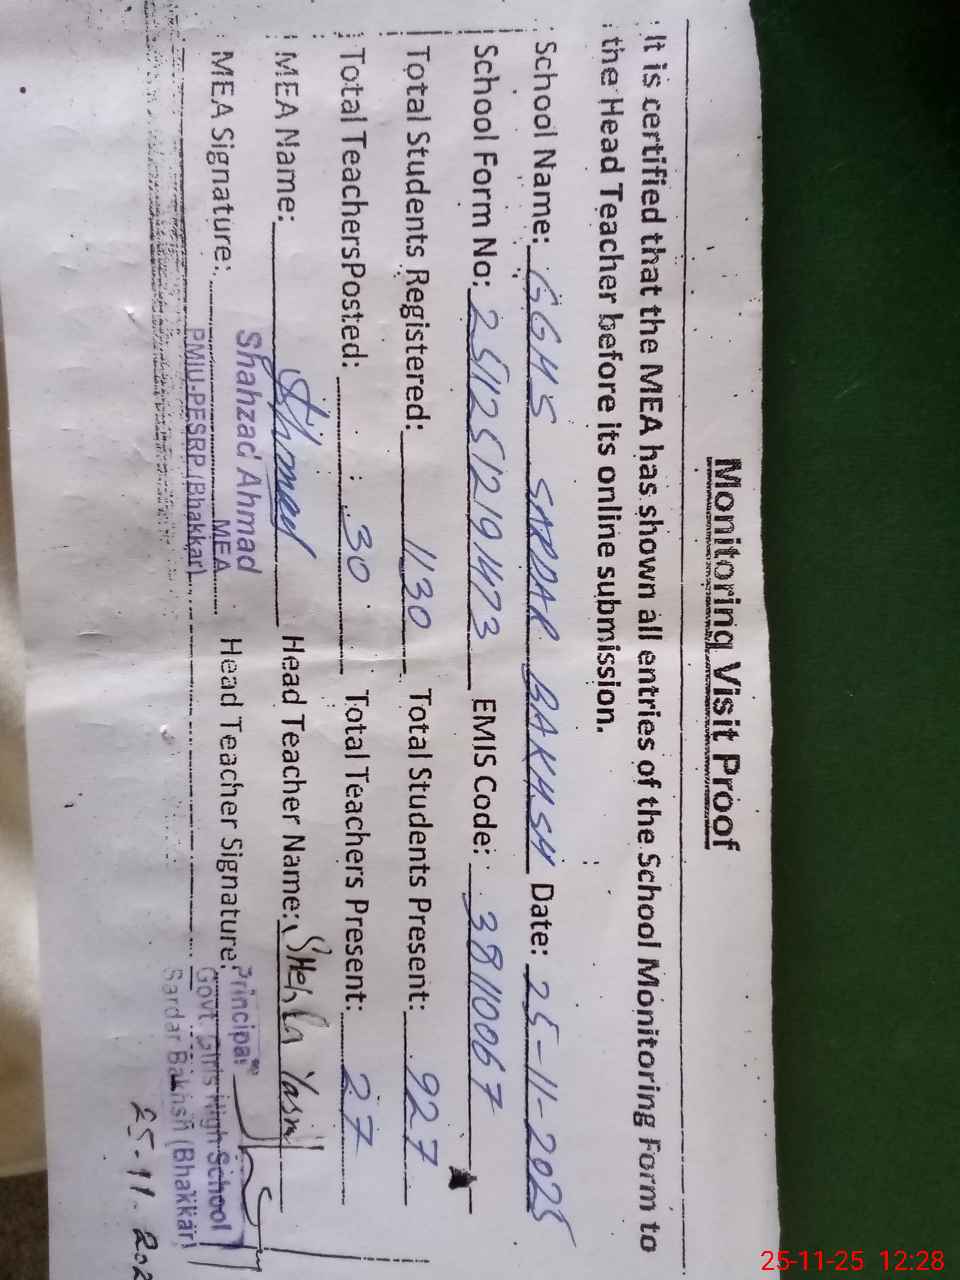 Monitoring Visit Proof
It is certified that the MEA has shown all entries of the School Monitoring Form to
the Head Teacher before its online submission.
School Name: GGHS SARDAR BAKHSH Date: 25-11-2025
School Form No: 251125121911473 EMIS Code: 38110067
Total Students Registered: 1130 Total Students Present: 927
Total TeachersPosted: 30 Total Teachers Present: 27
MEA Name: Head Teacher Name: Shehla Yasmin
MEA Signature: Head Teacher Signature:
Shahzad Ahmad
MEA
PMIU-PESRP (Bhakkar)
Principal
Govt. Girls High School
Sardar Bakhsh (Bhakkar)
25-11-202
25-11-25 12:28